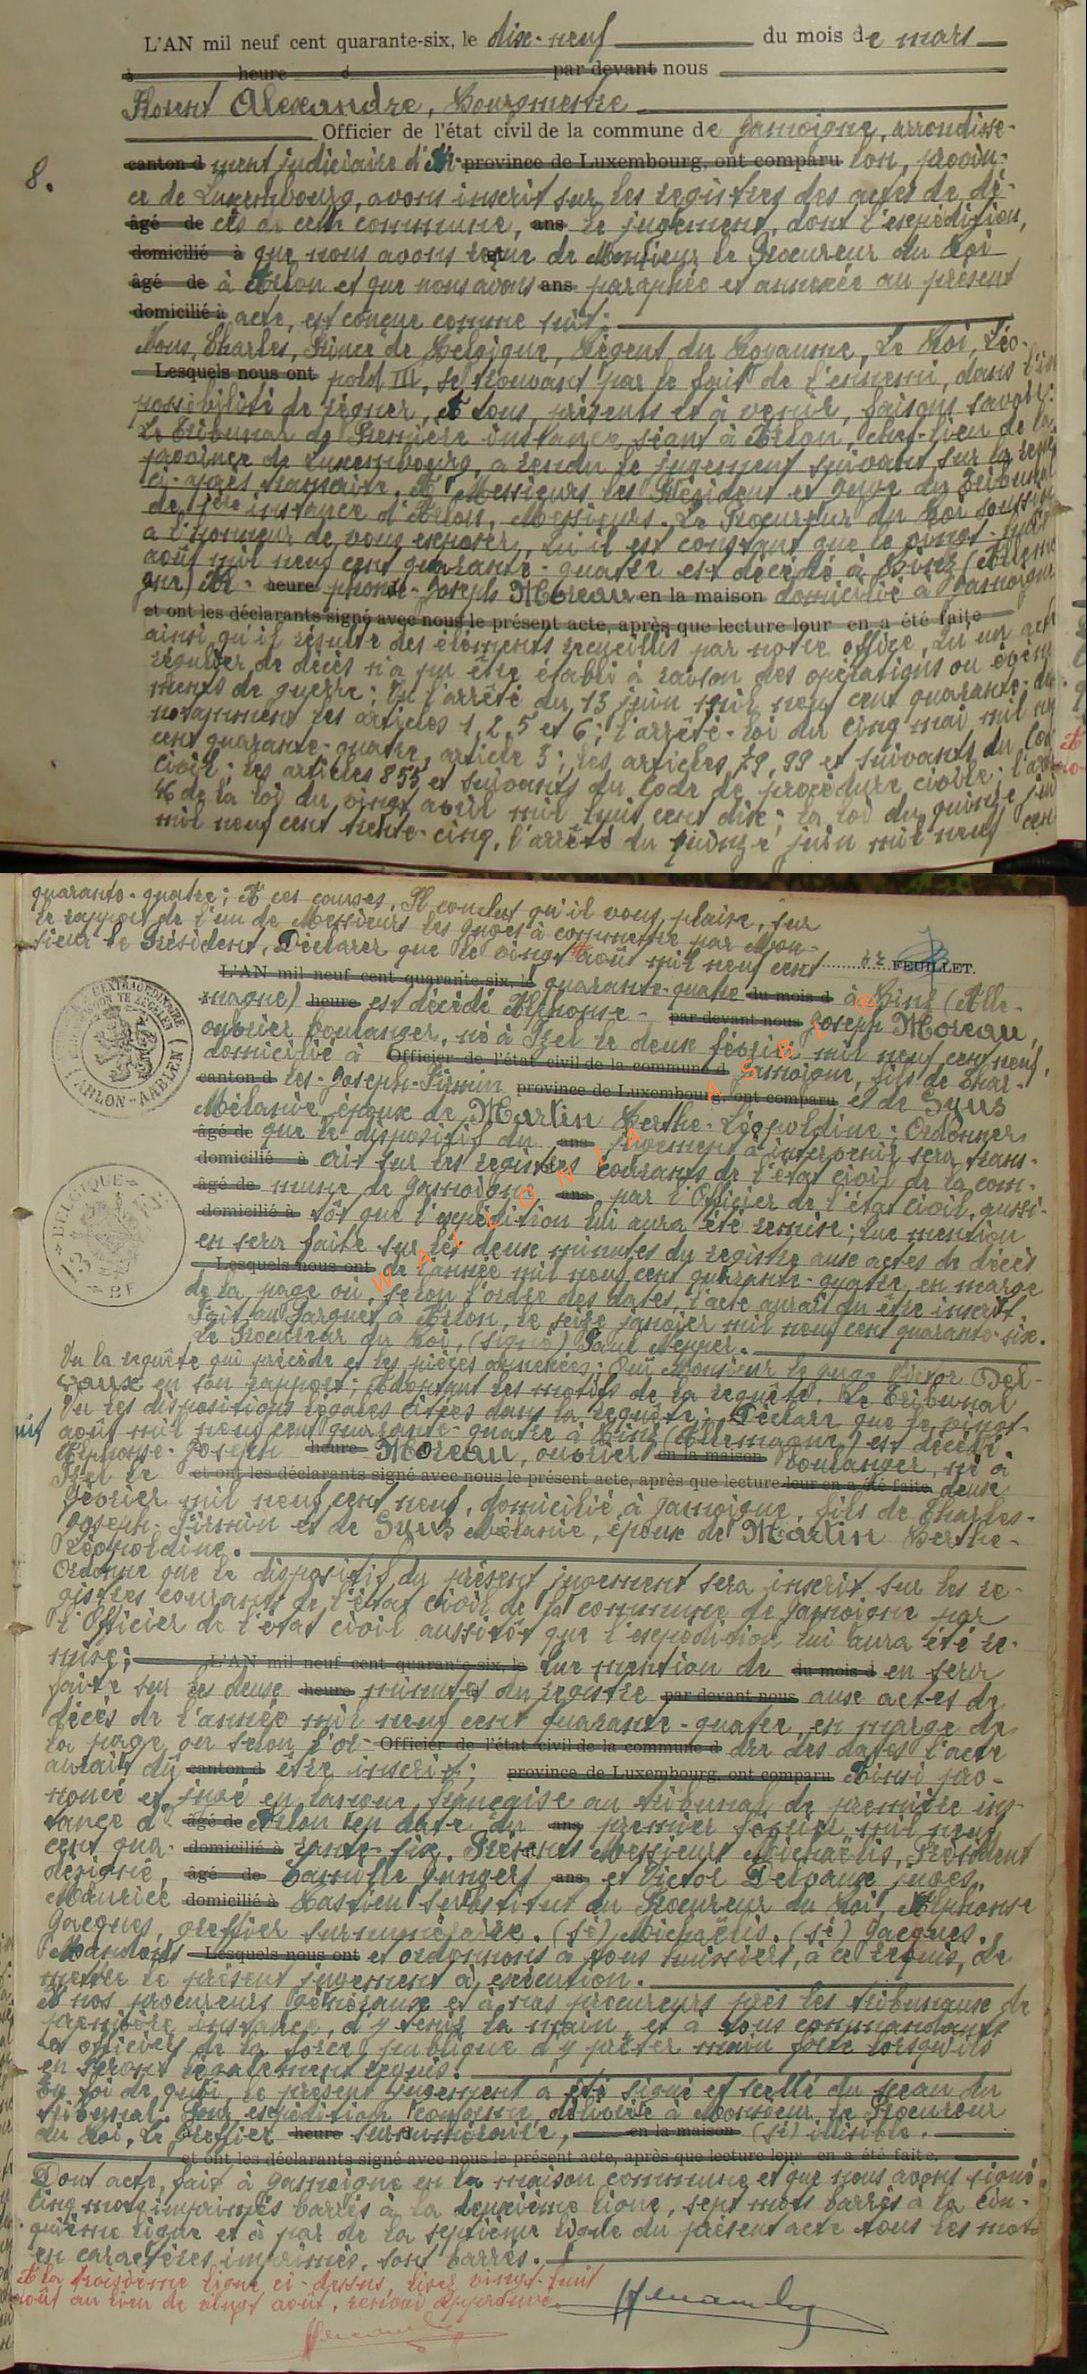 L'AN mil neuf cent quarante-six, le dix-neuf du mois de mars
à heure d par devant nous
Florent Alexandre, Bourgmestre
Officier de l'état civil de la commune de Jamoigne, arrondisse-
8.
canton d ment judiciaire d'Ar- province de Luxembourg, ont comparu lon, provin-
ce de Luxembourg, avons inscrit sur les registres des actes de dé-
âgé de cès de cette commune, ans le jugement, dont l'expédition,
domicilié à que nous avons reçue de Monsieur le Procureur du Roi
âgé de à Arlon et que nous avons ans paraphée et annexée au présent
domicilié à acte, est conçue comme suit:
Nous, Charles, Prince de Belgique, Régent du Royaume, Le Roi, Léo-
Lesquels nous ont pold III, se trouvant par le fait de l'ennemi, dans l'im
possibilité de régner, A tous, présents et à venir, faisons savoir:
Le Tribunal de Première instance, séant à Arlon, chef-lieu de la
province de Luxembourg, a rendu le jugement suivant sur la requê
ci-après transcrite, A Messieurs les Président et Juge du Tribunal
de 1ère instance d'Arlon, Messieurs. Le Procureur du Roi soussi
a l'honneur de vous exposer, qu'il est constant que le vingt-huit
août mil neuf cent quarante-quatre est décédé à Linz (Allema
gne) Al- heure phonse-Joseph Moreau en la maison domicilié à Jamoigne
et ont les déclarants signé avec nous le présent acte, après que lecture leur en a été faite
ainsi qu'il résulte des éléments recueillis par notre office, qu'un acte
régulier de décès n'a pu être établi à raison des opérations ou événe
ments de guerre; Vu l'arrêté du 13 juin mil neuf cent quarante-
notamment les articles 1, 2, 5 et 6; l'arrêté-loi du cinq mai mil neuf
cent quarante-quatre, article 3; les articles 79, 99 et suivants du Code
civil; les articles 855 et suivants du Code de procédure civile; l'article
46 de la loi du vingt avril mil huit cent dix; la loi du quinze juin
mil neuf cent trente-cinq, l'arrêté du quinze juin mil neuf cent
quarante-quatre; A ces causes, Il conclut qu'il vous plaise, sur
le rapport de l'un de Messieurs les Juges à commettre par Mon-
sieur le Président, Déclarer que le vingt août mil neuf cent
FEUILLET.
L'AN mil neuf cent quarante-six, le quarante-quatre du mois d à Linz (Alle-
magne) heure est décédé Alphonse- par devant nous Joseph Moreau,
ouvrier boulanger, né à Izel le deux février mil neuf cent neuf,
domicilié à Officier de l'état civil de la commune d Jamoigne, fils de Char-
canton d les-Joseph-Firmin province de Luxembourg, ont comparu et de Syus
Mélanie, époux de Martin Berthe-Léopoldine; Ordonner
âgé de que le dispositif du ans jugement à intervenir sera trans-
domicilié à crit sur les registres courants de l'état civil de la com-
âgé de mune de Jamoigne ans par l'Officier de l'état civil, aussi-
domicilié à tôt que l'expédition lui aura été remise; que mention
en sera faite sur les deux minutes du registre aux actes de décès
Lesquels nous ont de l'année mil neuf cent quarante-quatre, en marge
de la page où, selon l'ordre des dates, l'acte aurait dû être inscrit.
Fait au Parquet à Arlon, le seize janvier mil neuf cent quarante-six.
Le Procureur du Roi, (signé) Paul
WALLONIA ASBL
Vu la requête qui précède et les pièces annexées; Ouï Monsieur le juge Victor Del-
vaux en son rapport; Adoptant les motifs de la requête. Le Tribunal
Vu les dispositions légales citées dans la requête; Déclare que le vingt-
huit août mil neuf cent quarante-quatre à Linz (Allemagne) est décédé
Alphonse-Joseph heure Moreau, ouvrier en la maison boulanger, né à
Izel le et ont les déclarants signé avec nous le présent acte, après que lecture leur en a été faite deux
février mil neuf cent neuf, domicilié à Jamoigne, fils de Charles-
Joseph-Firmin et de Syus Mélanie, époux de Martin Berthe-
Léopoldine.
Ordonne que le dispositif du présent jugement sera inscrit sur les re-
gistres courants de l'état civil de la commune de Jamoigne par
l'Officier de l'état civil aussitôt que l'expédition lui aura été re-
mise; L'AN mil neuf cent quarante-six, le que mention de du mois d en sera
faite sur les deux heure minutes du registre par devant nous aux actes de
décès de l'année mil neuf cent quarante-quatre, en marge de
la page où selon l'or- Officier de l'état civil de la commune d dre des dates l'acte
aurait dû canton d être inscrit; province de Luxembourg, ont comparu Ainsi pro-
noncé et jugé en langue française au tribunal de première ins-
tance d' âgé de Arlon en date du ans premier février mil neuf
cent qua- domicilié à rante-six. Présents Messieurs Michaëlis, Président
désigné, âgé de Camille Jungers ans et Victor Delvaux juges,
Maurice domicilié à Bastien substitut du Procureur du Roi, Alphonse
Jacques, greffier surnuméraire. (sé) Michaëlis. (sé) Jacques.
Mandons Lesquels nous ont et ordonnons à tous huissiers, à ce requis, de
mettre le présent jugement à exécution.
A nos procureurs généraux et à nos procureurs près les tribunaux de
première instance, d'y tenir la main, et à tous commandants
et officiers de la force publique d'y prêter main forte lorsqu'ils
en seront légalement requis.
En foi de quoi, le présent jugement a été signé et scellé du sceau du
tribunal. Pour expédition conforme, délivrée à Monsieur le Procureur
du Roi, Le Greffier heure surnuméraire, en la maison (sé) illisible.
et ont les déclarants signé avec nous le présent acte, après que lecture leur en a été faite,
Dont acte, fait à Jamoigne en la maison commune et que nous avons signé.
Cinq mots imprimés barrés à la deuxième ligne, sept mots barrés à la cin-
quième ligne et à par de la septième ligne du présent acte tous les mots
en caractères imprimés, sont barrés.
A la troisième ligne ci-dessus, lisez vingt-huit
août au lieu de vingt août, renvoi approuvé.